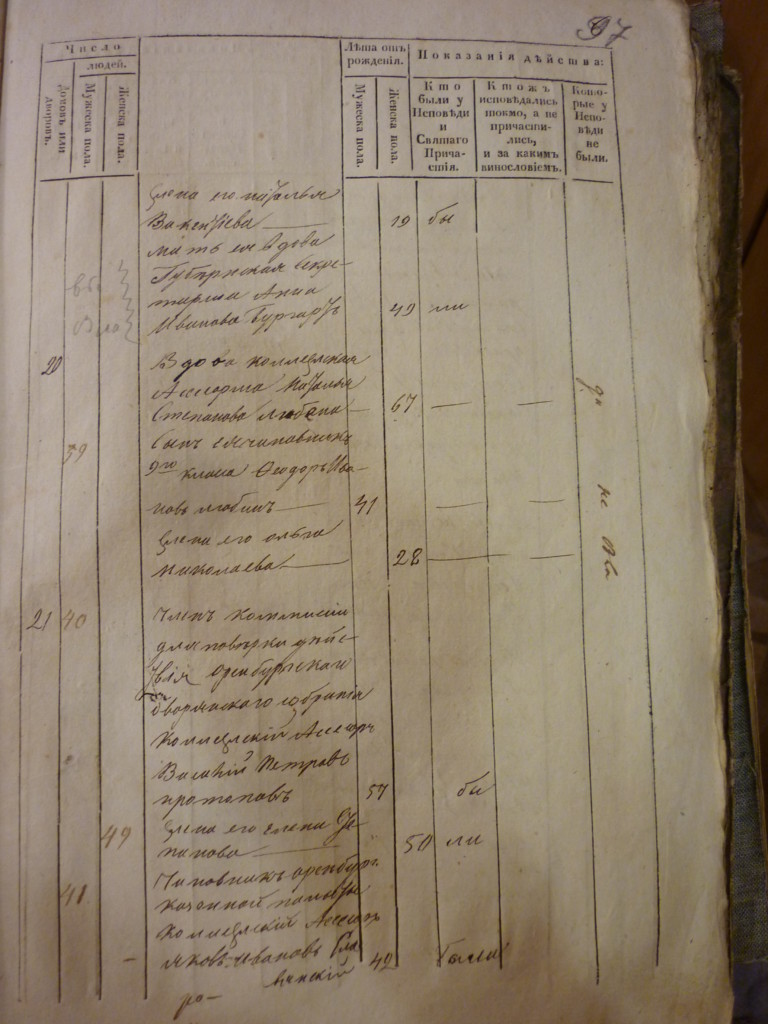 97
Число
людей.
Домовъ или дворовъ.
Мужеска пола.
Женска пола.
Лѣта отъ
рожденія.
Мужеска пола.
Женска пола.
Показанія дѣйства:
Кто
были у
Исповѣди
и
Святаго
Прича-
стія.
Ктожъ
исповѣдались
токмо, а не
причасти-
лись,
и за какимъ
винословіемъ.
Кото-
рые у
Испо-
вѣди
не
были.
Жена его Наталья
Викентіева 19 бы
мать ея вдова
Губернская Секре-
тарша Анна
Иванова Бургардъ 49 ли
20 Вдова коллежская
Ассесорша Наталья
Степанова Любина 67
39 Сынъ ея чиновникъ
9го класса Ѳеодоръ Ива-
новъ Любинъ 41
Жена его Ольга
Николаева 28
21 40 Членъ Коммисіи
для повѣрки дѣйс-
твія Оренбургскаго
Дворянскаго собранія
Коллежскій Ассесоръ
Василій Петровъ
Протоповъ 57 бы
49 Жена его Елена Сте-
панова 50 ли
41 Чиновникъ Оренбург.
казенной палаты
Коллежскій Ассесоръ
Яковъ Ивановъ Сла-
вянскій 42 были